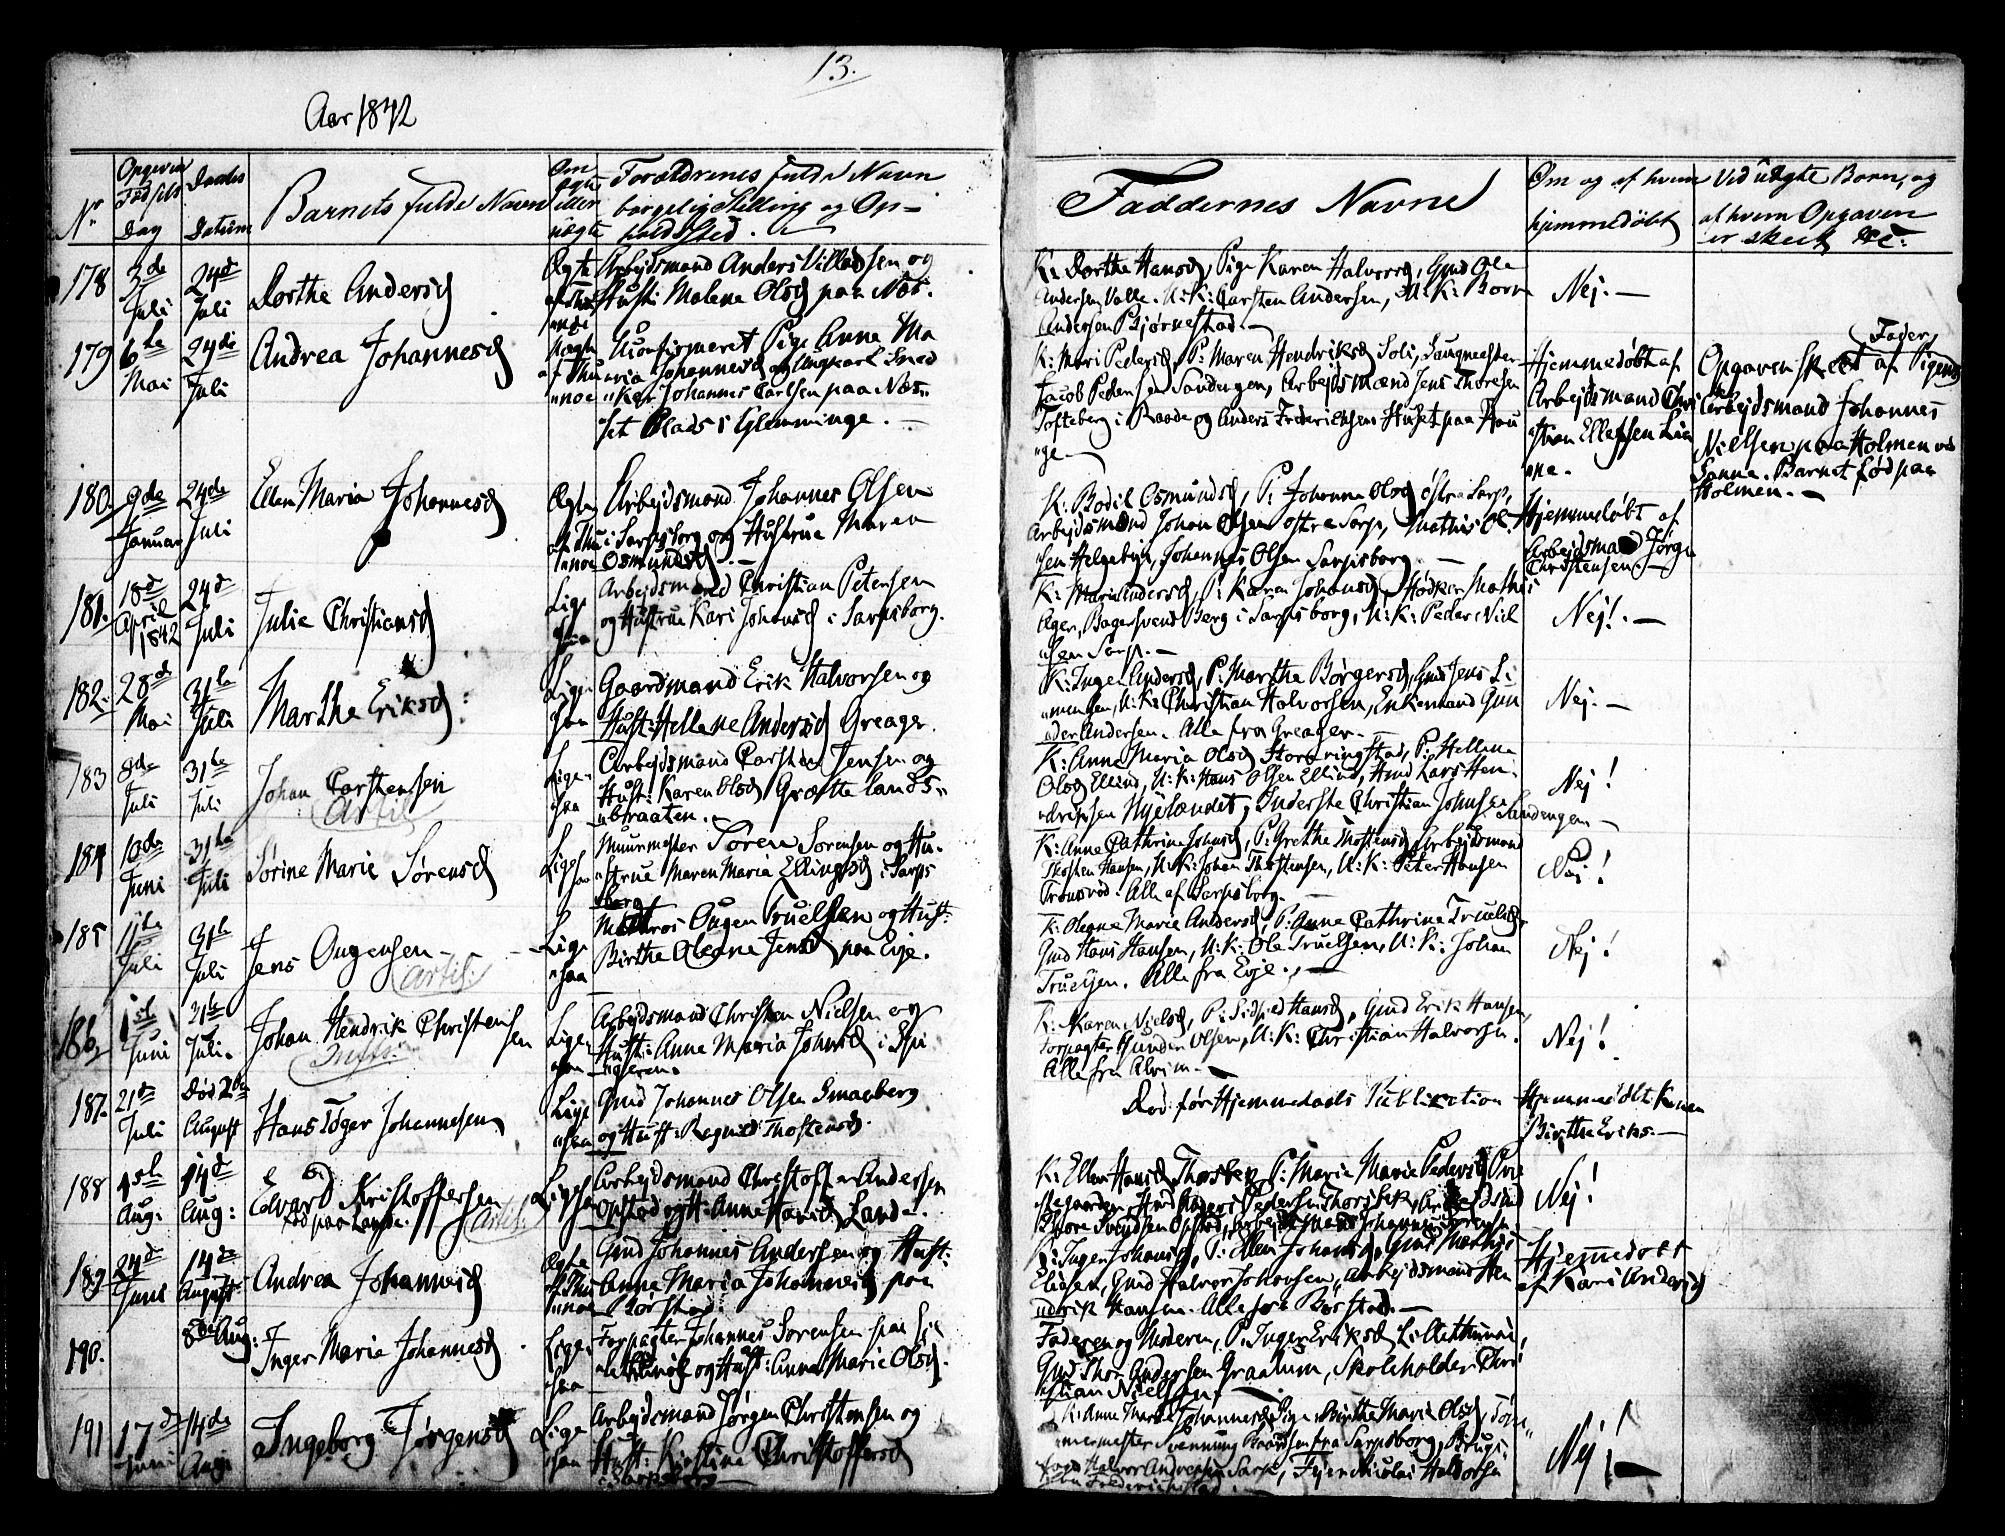 13.
Aar 1842
Nr
Opgiven Fødsels Dag
Daabs Datum
Barnets fulde Navn
Om ægte eller uægte
Forældrenes fulde Navn
borgelig Stilling og Op-
holdssted.
Faddernes Navne
Om og af hvem hjemmedøbt
Ved uægte Børn, og
af hvem Opgaven
er skeet &c:
178 3de Juli 24de Juli Dorthe Andersd Ægte
Arbejdsmand Anders Villadsen og
Hust: Malene Olsd paa Næs.
K: Dorthe Hansd, Pige Karen Halvorsd, Gmd Ole
Andersen Valle. U:K: Carsten Andersen, U:K: Børn
Andersen Bjørnestad.
Nej. —
179 6te Mai 24de Juli Andrea Johannesd
Uconfirmeret Pige Anne Ma
"ria Johannesd og Ungkarl Sned
"ker Johannes Carlsen paa Næs"
"set Plads i Glemminge. —
K: Mari Pedersd, P: Maren Hendriksd Soli, Saugmester
Jacob Pedersen Sandengen, Arbejdsmænd Jens Thoresen
Tofteberg i Raade og Anders Frederichsens Huset paa Hau
"ge —
Hjemmedøbt af
Arbejdsmand Chri
"stian Ellefsen
Opgaven skeet af Pigens Fader
Arbejdsmand Johannes
Nielsen paa Holmen ved
Sanne. Barnet fød paa
Holmen. —
180. 9de Januar 24de Juli Ellen Maria Johannesd Ægte
Arbejdsmand Johannes Olsen
i Sarpsborg og Hustrue Maren
Osmundsd. —
K: Bodil Osmundsd, P: Johanne Olsd østre Sarp,
Arbejdsmand Johan Olsen østre Sarp, Mathis Ol
"sen Helgebyn, Johannes Olsen Sarpsborg. —
Hjemmedøbt af
Arbejdsmand Jørge
Christensen —
181. 18de April 1842 24de Juli Julie Christiansd Lige
Arbejdsmand Christian Petersen
og Hustrue Kari Johansd i Sarpsborg.
K: Maria Andersd, P: Karen Johansd, Mathis
Ager, Bagersvend Berg i Sarpsborg, U:K: Peder Niel
"sen Sarp. —
Nej!. —
182. 28de Mai 31te Juli Marthe Eriksd Lige saa
Gaardmand Erik Halvorsen og
Hust: Hellene Andersd Greager.
K: Inger Andersd, P: Marthe Børgersd, Gmd Jens Si
"mensen, U:K: Christian Halvorsen, Enkemand Gun
"der Andersen. Alle fra Greager. —
Nej. —
183 8de Juli 31te Juli Johan Carstensen Lige saa
Artil.
Arbejdsmand Carsten Jensen og
Hust: Karen Olsd, Grættelands"
"braaten. —
K: Anne Maria Olsd Storeringstad, P: Hellene
Olsd Elling, U:K: Hans Olsen Elling, Gmd Lars Hen
"driksen Nyelandet, Inderste Christian Johnsen Sandengen —
Nej!
184 10de Juni 31te Juli Sørine Marie Sørensd Lige saa
Muurmester Søren Sørensen og Hu
"strue Maren Maria Ellingsd i Sarps
"borg
K: Anne Cathrine Johnsd, P: Grethe Thostensd, Arbejdsmand
Thosten Hansen, U:K: Johan Thostensen, U:K: Peter Hansen
Alle af Sarpsborg. —
Nei!
185 11te Juli 31te Juli Jens Ougensen — Lige "saa
Artil:
Matros Ougen Truelsen og Hust:
Birthe Oleane Jensd paa Evje.
K: Olegne Marie Andersd, P: Anne Cathrine Truelsd,
Gmd Hans Hansen, U:K: Ole Truelsen, U:K: Johan
Truelsen. Alle fra Evje. —
Nej!
186. 1st Juni 31te Juli. Johan Hendrik Christen
sen Lige saa
Inff:
Arbejdsmand Christen Nielsen og
Hust: Anne Maria Johnsd i Spi
"geren.
K: Maren Nielsd, P: Sidsel Hansd, Gmd Erik Hansen,
Forpagter Gunder Olsen, U:K: Christian Halvorsen.
Alle fra Alvim. —
Nej!
187. 21de Juli Død 2den August Hans Jøger Johannesen Lige "saa
Gmd Johannes Olsen Smaaberg
og Hust: Regned Thostensd.
Død før Hjemmedaabs Publication
Hjemmedøbt Konen
Birthe Eriks. —
188 1st Aug: 14de Aug: Edvard Kristoffersen Lige saa
født paa Lande. Artil:
Arbejdsmand Christoffer Andersen
Opstad og H: Anne Hansd Lande.
K: Ellen Hansd Thorsbek, P: Marie Marie Pedersd Ove
Anders Pedersen Thorsbek,
Thore Svendsen Opstad, Arbejdsmand Johannes Sørensen.
Nej!
189. 24de Juni 14de August Andrea Johannesd Ægte
Gmd Johannes Andersen og Hust:
Anne Maria Johannesd paa
Børstad.
K: Inger Johansd, P: Ellen Johansd, Gmd Mathis
Eliesen, Gmd Halvor Johansen, Arbejdsmand Hen
"drik Hansen. Alle fra Børstad. —
Hjemedøbt
af Kari Andersd
190. 8de Aug: Inger Maria Johannesd. Lige saa
Forpagter Johannes Sørensen paa
og Hust: Anne Marie Olsd.
Faderen og Moderen, P: Inger Eriksd
Gmd Thor Andersen Graalum, Skoleholder Chri
"stian Nielsen. —
191 17de Juni 14de Aug: Ingeborg Jørgensd Lige saa
Arbejdsmand Jørgen Christensen og
Hust: Kirstine Christoffersd
i Sarpsborg —
K: Anne Marie Johannesd, Pige Birthe Marie Olsd, Tøm
"mermester Svenning Baardsen fra Sarpsborg, Brugs
"foged Halvor Andersen Sarp, Nicolai Halvorsen
Frederichstad. —
Nej! —